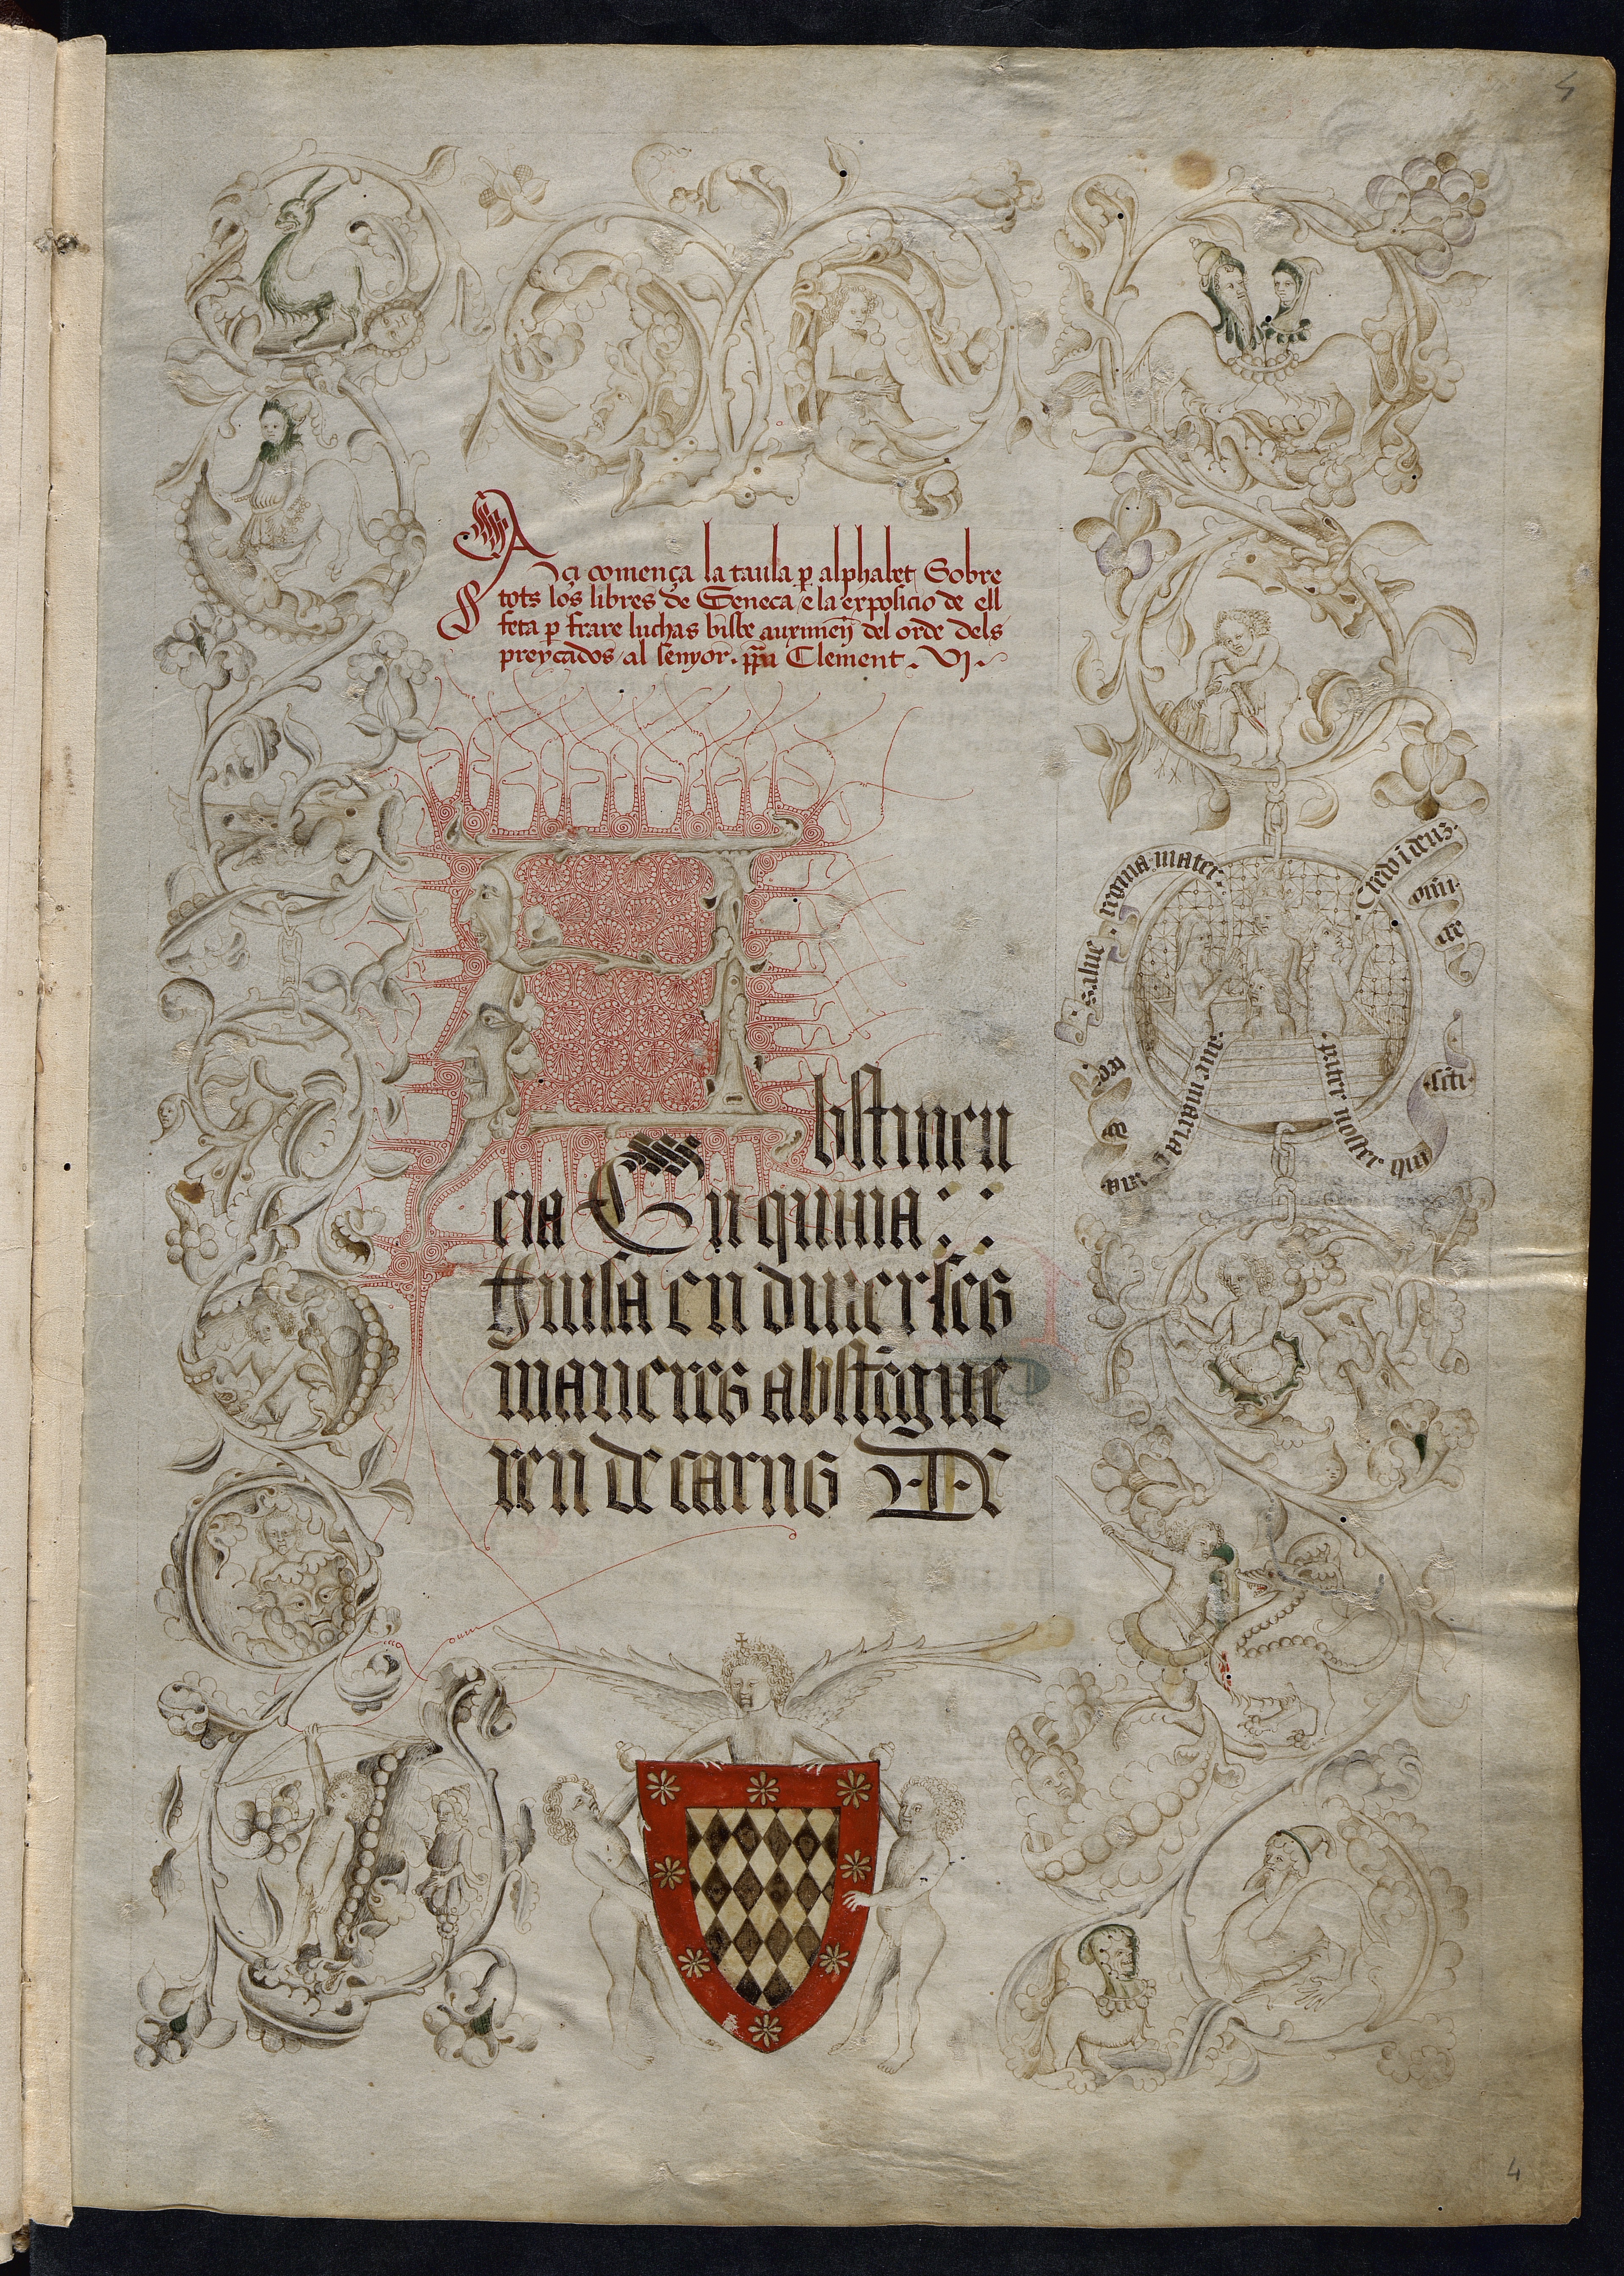 Açi comença la taula p̱ alphabet Sobre
tots los libres de Seneca / e la exposicio de ell
feta p̱ frare luchas bisbe auximeñ del orde dels
preycados / al senyor. pp̄a Clement. VI.
Abstinen
cia En quina
guisa en diuerses
maneres abstēgue
ren de carns De
Salue. regina mater.
Credo ī deus.
om̄i
ple
Aue maria. gr̄a
pater noster qui
4
4